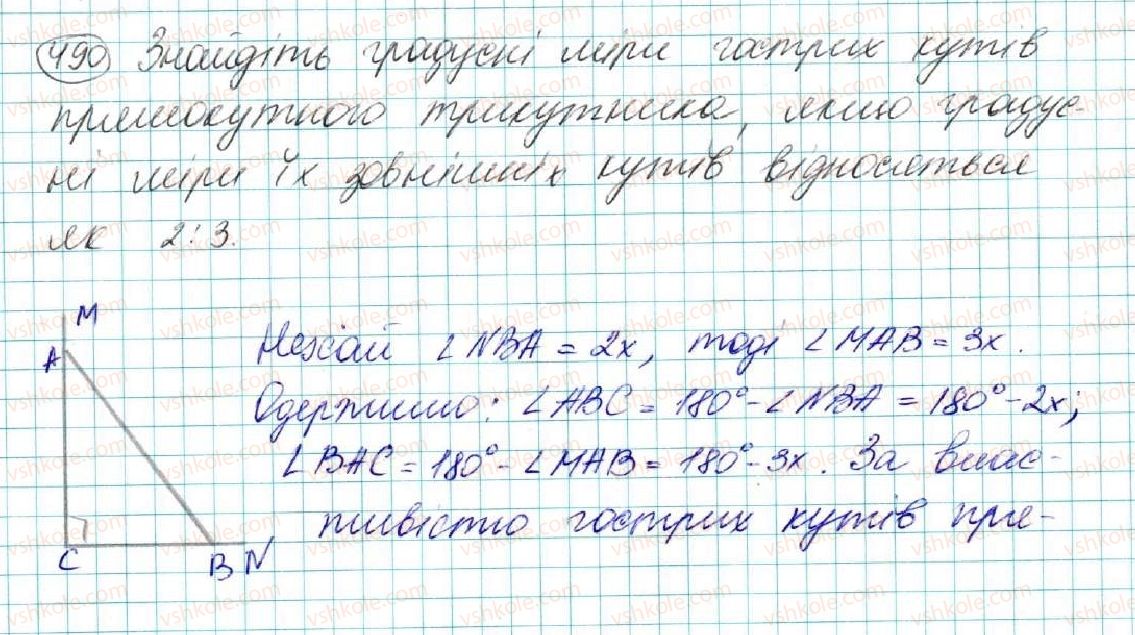 490 Знайдіть градусні міри гострих кутів
прямокутного трикутника, якщо градус-
ні міри їх зовнішніх кутів відносяться
як 2:3.
M
A
C
B N
Нехай ∠NBA = 2x, тоді ∠MAB = 3x.
Одержимо: ∠ABC = 180° - ∠NBA = 180° - 2x;
∠BAC = 180° - ∠MAB = 180° - 3x. За влас-
тивістю гострих кутів пря-